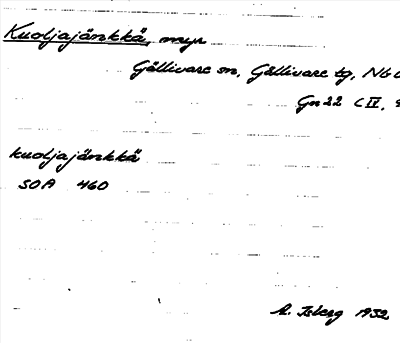 Kuoljajänkkä, myr
Gällivare sn, Gällivare tg, Nb
Gn 22 C IV,
kuoljajänkkä
SOA 460
A. Isberg 1932